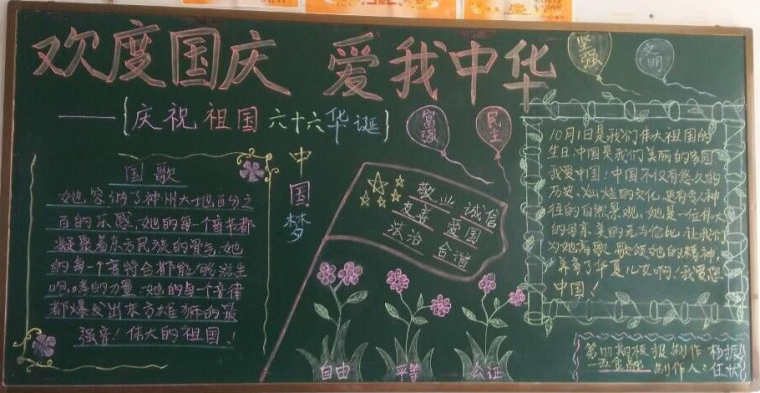 欢度国庆 爱我中华
——{庆祝祖国六十六华诞}
坚强
文明
富强
民主
中国梦
国歌
她容纳了神州大地百分之
百的乐感,她的每一个音节都
凝聚着东方民族的骨气,她
的每一个音符合都能
的力量,她的每一个音律
都爆发出东方雄狮的最
强音!伟大的祖国!
敬业 诚信
友善 爱国
法治 合谐
自由
平等
公证
10月1日是我们伟大祖国的
生日,中国是我们美丽的家园
我爱中国:中国不仅有悠久的
历史,灿烂的文化,还有令人神
往的自然景观,她是一位伟大
的母亲,美的无与伦比,让我们
为她高歌,歌颂她的精神,
养育了华夏儿女啊!我爱您
中国!
第四期板报 制作
制作人: